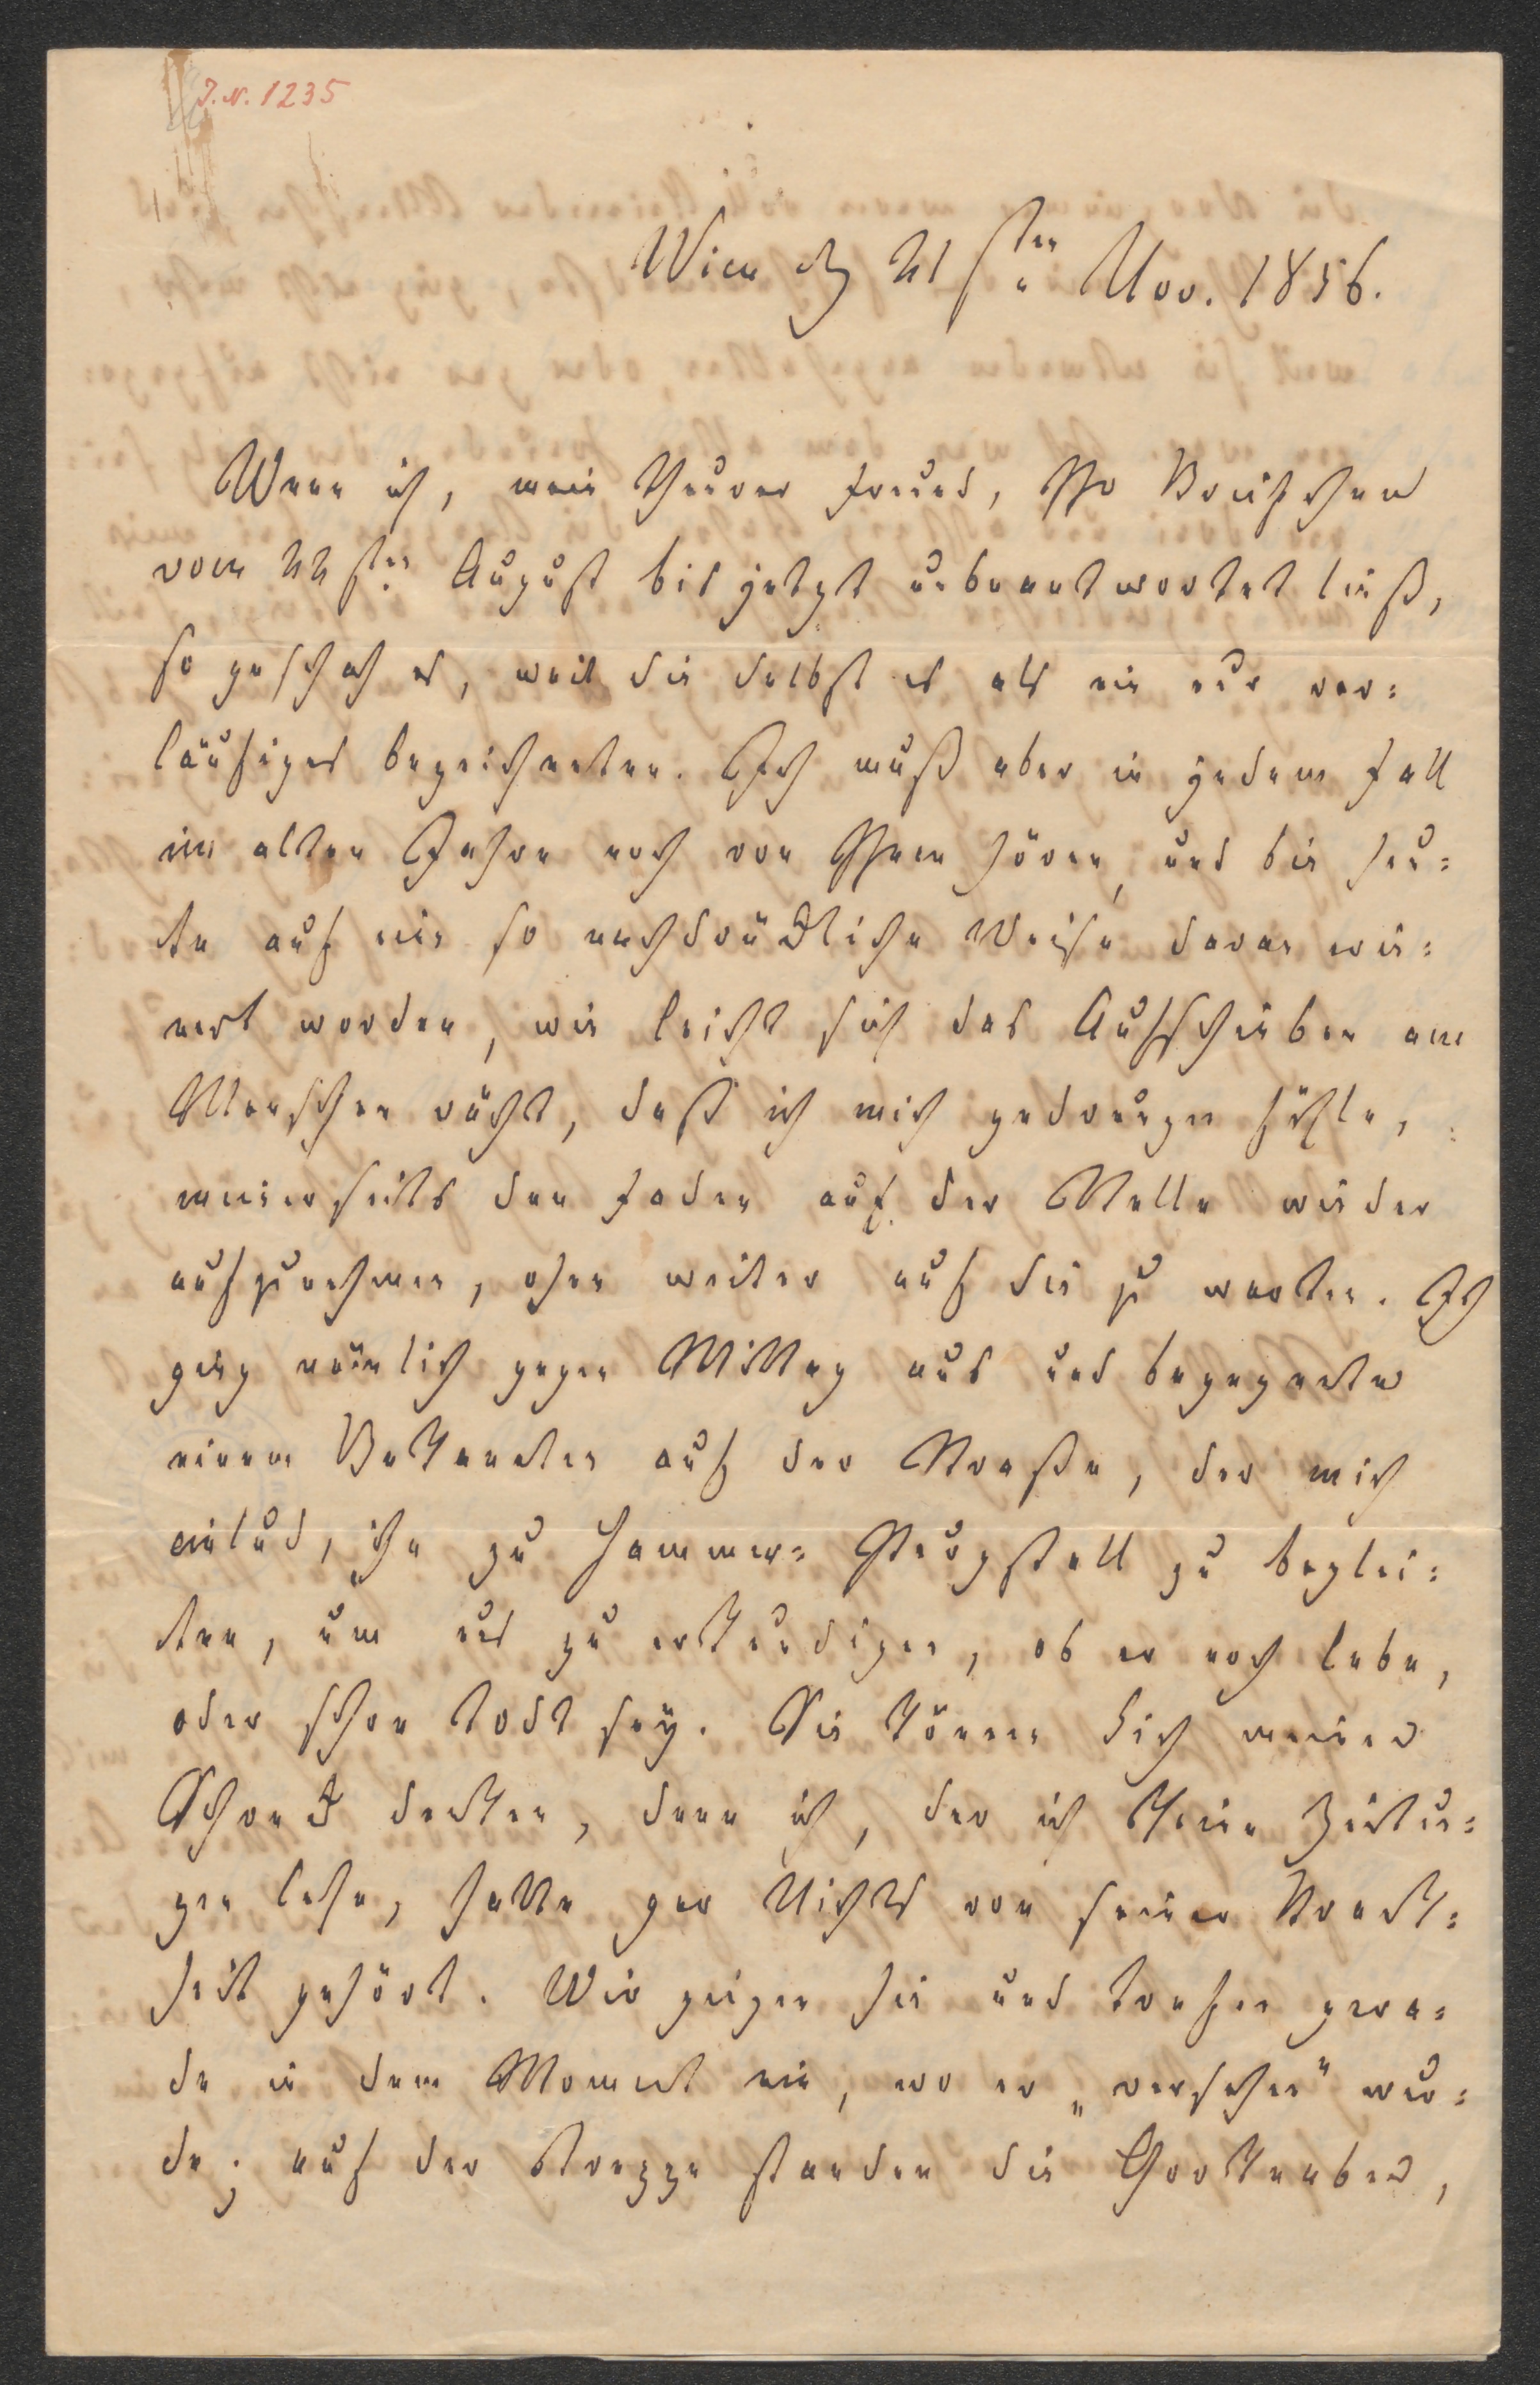 J. N. 1235
Wien d 21sten Nov. 1856.
Wenn ich, mein theurer Freund, Ihr Briefchen
vom 22sten August bis jetzt unbeantwortet ließ,
so geschah es, weil Sie selbst es als ein nur vor=
läufiges bezeichneten. Ich muß aber in jedem Fall
im alten Jahre noch von Ihnen hören, und bin heu=
te auf eine so nachdrückliche Weise daran erin=
nert worden, wie leicht sich das Aufschieben am
Menschen rächt, daß ich mich gedrungen fühle,
meinerseits den Faden auf der Stelle wieder
aufzunehmen, ohne weiter auf Sie zu warten. Ich
ging nämlich gegen Mittag aus und begegnete
einem Bekannten auf der Straße, der mich
einlud, ihn zu Hammer=Purgstall zu beglei=
ten, um uns zu erkundigen, ob er noch lebe,
oder schon todt sey. Sie können Sich meinen
Schreck denken, denn ich, der ich keine Zeitun=
gen lese, hatte gar Nichts von seiner Krank=
heit gehört. Wir gingen hin und trafen gera=
de in dem Moment ein, wo er „versehen“ wur=
de; auf der Treppe standen die Chorknaben,